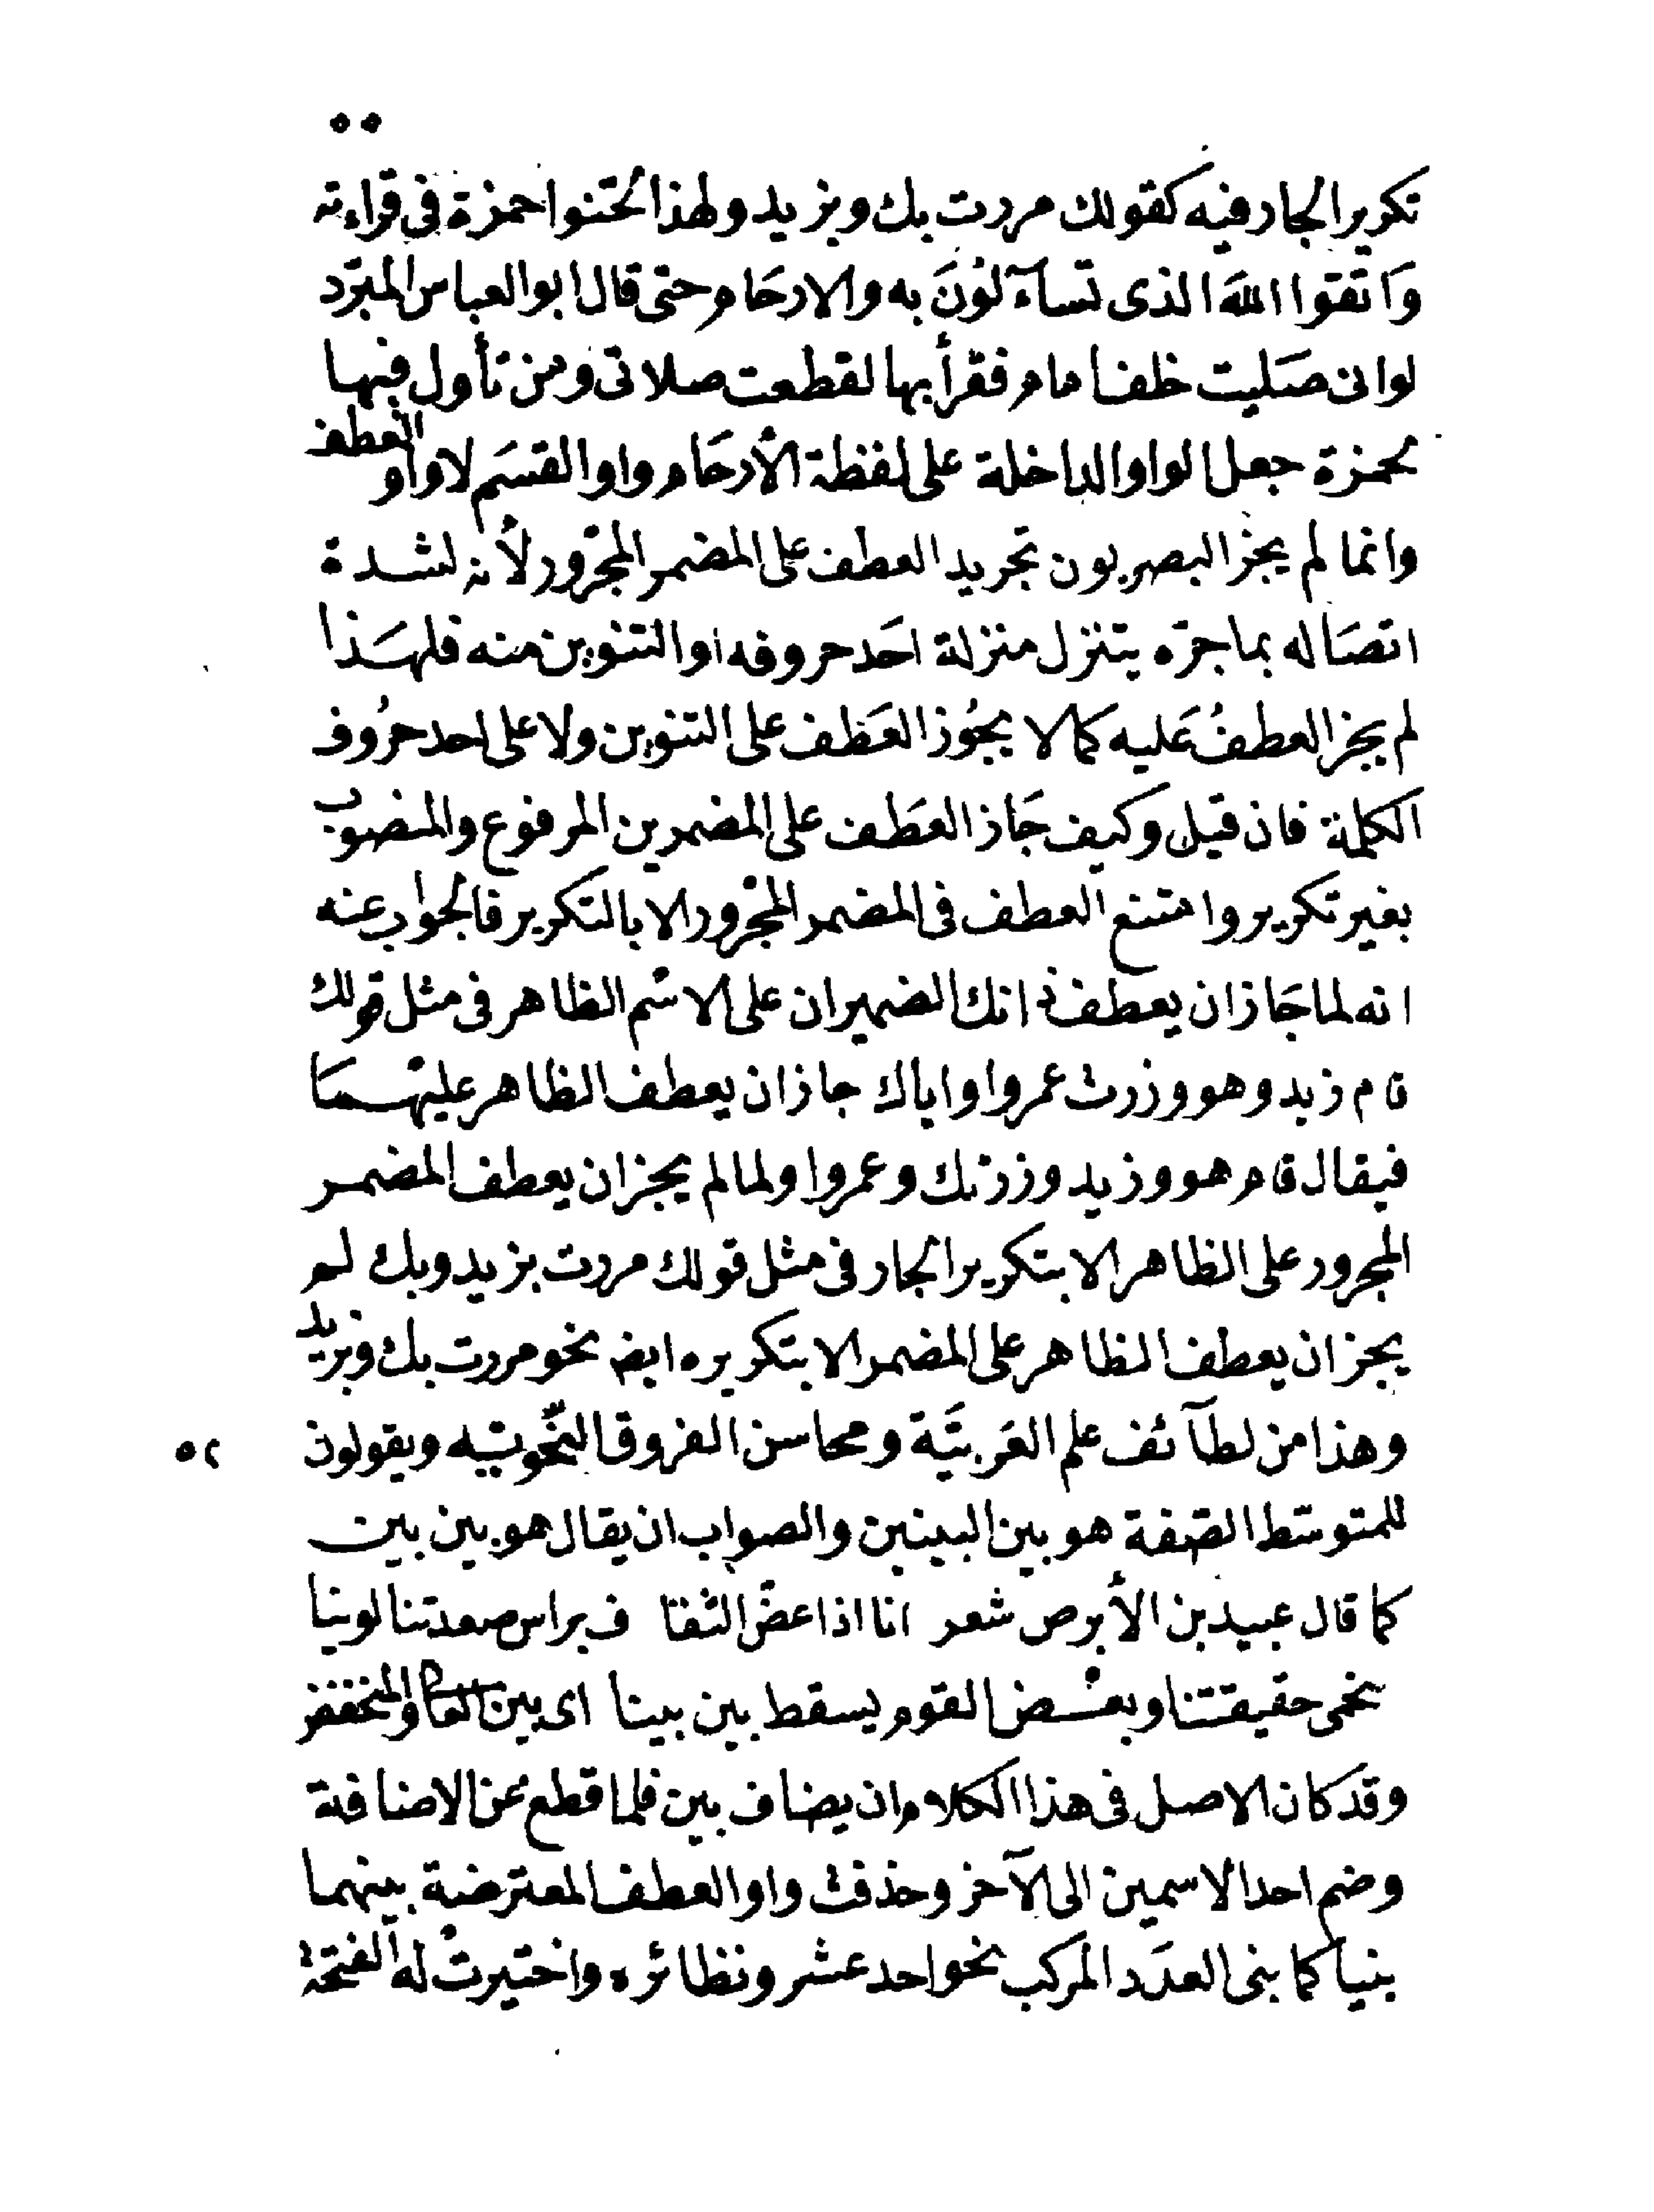 ٥٥
تكرير الجار فيه كقولك مررت بك وبزيد ولهذا لحّنوا حمزة فى قراءته
وَاتقوا اللهَ الذى تسآءَلُونَ به والارحَام حتى قال ابو العباس المبرّد
لو انى صَليت خلف امام فقرأ بها لقطعت صلاتى ومن تأول فيها
لحمزة جعل الواو الداخلة على لفظة الأرحَام واو القسَم لا واو العطف
وانما لم يجز البصريون تجريد العطف على المضمر المجرور لأنه لشدة
اتصَاله بما جرّه يتنزل منزلة احَد حروفه او التنوين منه فلهَذا
لم يجز العطفُ عَليه كما لا يجُوز العَطف على التنوين ولا على احد حرُوف
الكلمة فان قيل وكيف جَاز العَطف على المضمرين المرفوع والمنصوب
بغير تكرير وامتنع العطف فى المضمر المجرور الا بالتكرير فالجواب عنه
انه لما جَاز ان يعطف ذانك الضميران على الاسْم الظاهر فى مثل قولك
قام زيد وهو وزرت عمروا واياك جاز ان يعطف الظاهر عليهمَا
فيقال قام هو وزيد وزرتك وعمروا ولما لم يجز ان يعطف المضمر
المجرور على الظاهر الا بتكرير الجار فى مثل قولك مررت بزيد وبك لم
يجز ان يعطف الظاهر على المضمر الا بتكريره ايض نحو مررت بك وبزيد
وهذا من لطآئف علم العَربيَّة ومحاسن الفروق النحّويّه ويقولون
٥٢
للمتوسّط الصّفة هو بين البينين والصواب ان يقال هو بين بين
كما قال عبيد بن الأبرص شعر انا اذا عضّ الثقا ف براس صعدتنا لوينا
نحمى حقيقتنا وبعْض القوم يسقط بين بينا اى بين العالى والمنخفض
وقد كان الاصل فى هذا الكلام ان يضاف بين فلما قطع عن الاضافة
وضم احد الاسمين الى الآخر وحذفت واو العطف المعترضة بينهما
بنيا كما بنى العدَد المركب نحو احد عشر ونظائره واختيرتْ له الفتحة